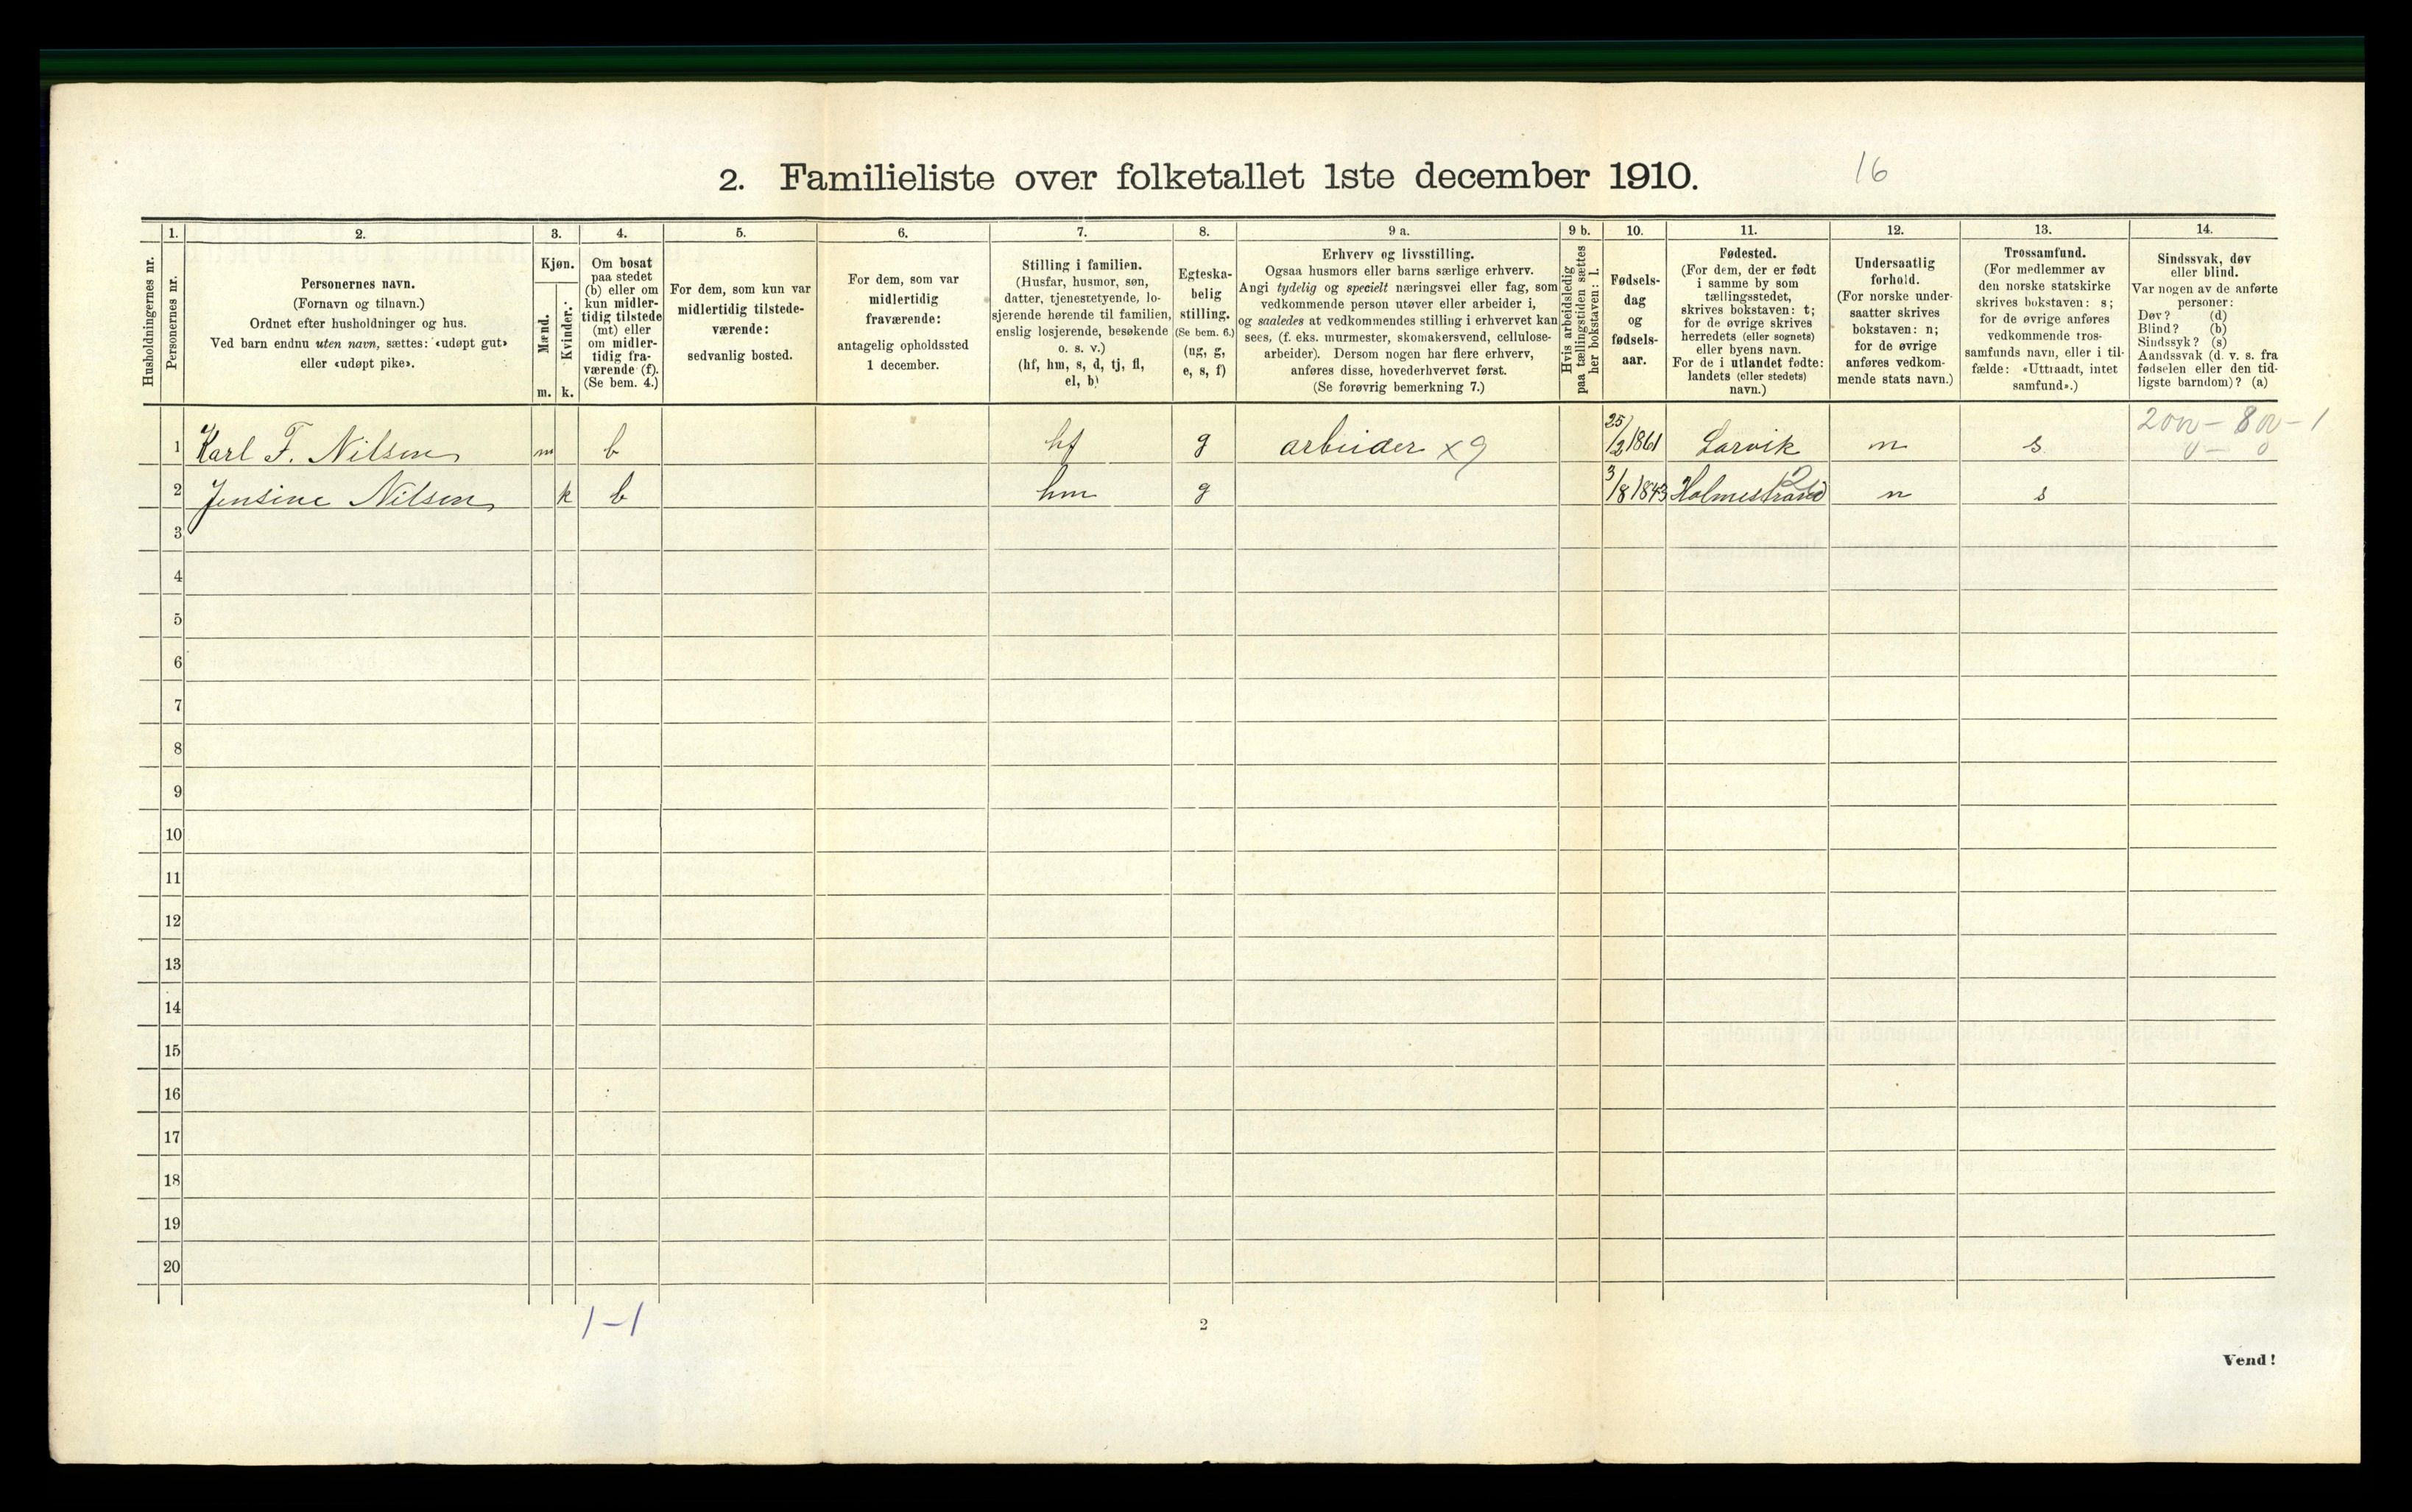 2. Familieliste over folketallet 1ste december 1910.
16
Husholdningernes nr.
1.
Personernes nr.
2.
Personernes navn.
(Fornavn og tilnavn.)
Ordnet efter husholdninger og hus.
Ved barn endnu uten navn, sættes: «udøpt gut»
eller «udøpt pike».
3.
Kjøn.
Mænd.
Kvinder.
m. k.
4.
Om bosat
paa stedet
(b) eller om
kun midler-
tidig tilstede
(mt) eller
om midler-
tidig fra-
værende (f).
(Se bem. 4.)
5.
For dem, som kun var
midlertidig tilstede-
værende:
sedvanlig bosted.
6.
For dem, som var
midlertidig
fraværende:
antagelig opholdssted
1 december.
7.
Stilling i familien.
(Husfar, husmor, søn,
datter, tjenestetyende, lo-
sjerende hørende til familien,
enslig losjerende, besøkende
o. s. v.)
(hf, hm, s, d, tj, fl,
el, b)
8.
Egteska-
belig
stilling.
(Se bem. 6.)
(ug, g,
e, s, f)
9 a.
Erhverv og livsstilling.
Ogsaa husmors eller barns særlige erhverv.
Angi tydelig og specielt næringsvei eller fag, som
vedkommende person utøver eller arbeider i,
og saaledes at vedkommendes stilling i erhvervet kan
sees, (f. eks. murmester, skomakersvend, cellulose-
arbeider). Dersom nogen har flere erhverv,
anføres disse, hovederhvervet først.
(Se forøvrig bemerkning 7.)
9 b.
Hvis arbeidsledig
paa tællingstiden sættes
her bokstaven: l.
10.
Fødsels-
dag
og
fødsels-
aar.
11.
Fødested.
(For dem, der er født
i samme by som
tællingsstedet,
skrives bokstaven: t;
for de øvrige skrives
herredets (eller sognets)
eller byens navn.
For de i utlandet fødte:
landets (eller stedets)
navn.)
12.
Undersaatlig
forhold.
(For norske under-
saatter skrives
bokstaven: n;
for de øvrige
anføres vedkom-
mende stats navn.)
13.
Trossamfund.
(For medlemmer av
den norske statskirke
skrives bokstaven: s;
for de øvrige anføres
vedkommende tros-
samfunds navn, eller i til-
fælde: «Uttraadt, intet
samfund».)
14.
Sindssvak, døv
eller blind.
Var nogen av de anførte
personer:
Døv? (d)
Blind? (b)
Sindssyk? (s)
Aandssvak (d. v. s. fra
fødselen eller den tid-
ligste barndom)? (a)
200 - 800 - 1
0 - 0
1 Karl F. Nilsen m b hf g arbeider x 9 25/2 1861 Larvik n s
2 Jensine Nilsen k b hm g 3/8 1843 Holmestrand n s
3
4
5
6
7
8
9
10
11
12
13
14
15
16
17
18
19
20
1-1
2
Vend!